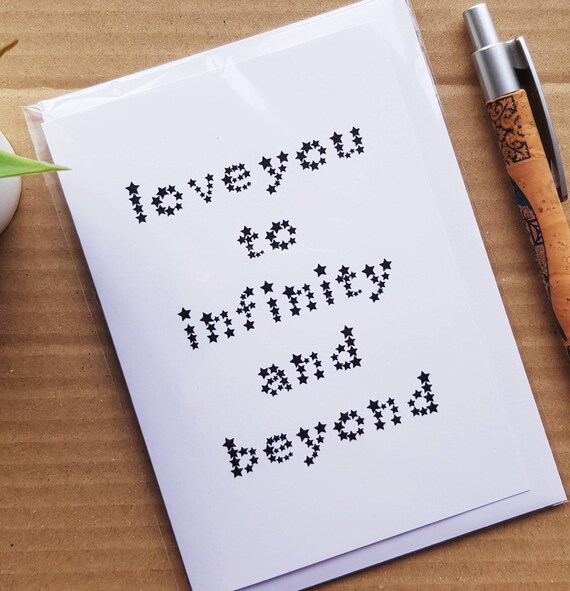 loveyou
to
infinity
and
beyond